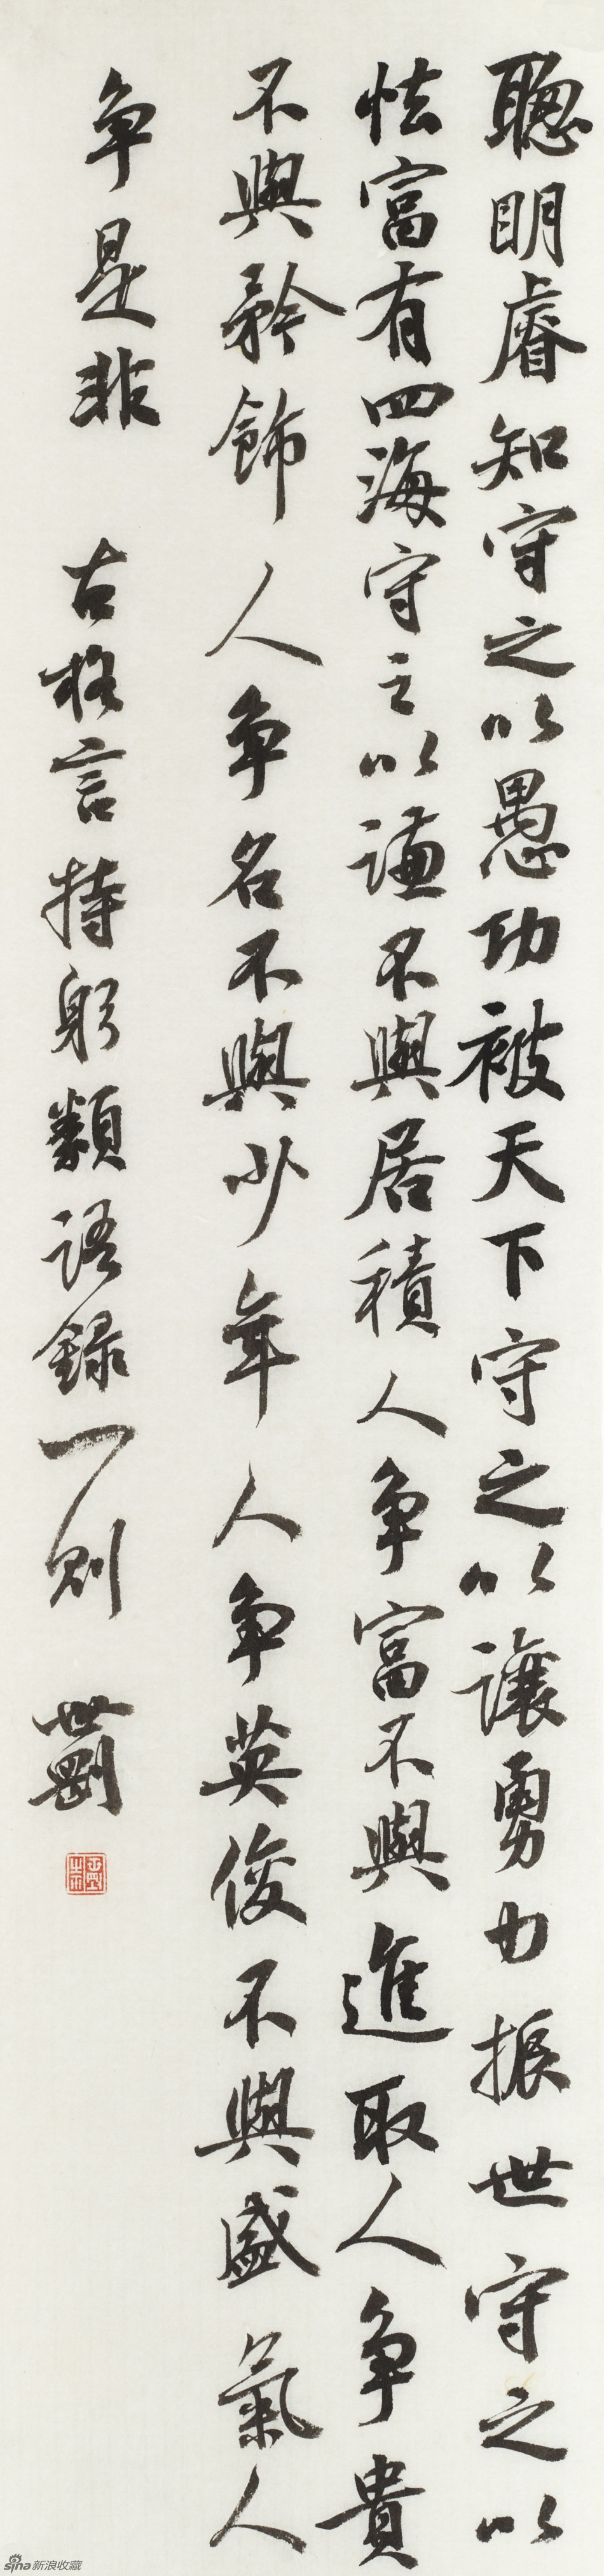 聰明睿知守之以愚功被天下守之以讓勇力振世守之以
怯富有四海守之以謙不與居積人争富不與進取人争貴
不與矜飾人争名不與少年人争英俊不與盛氣人
争是非 古格言持躬類語録一則 世劉
sina新浪收藏